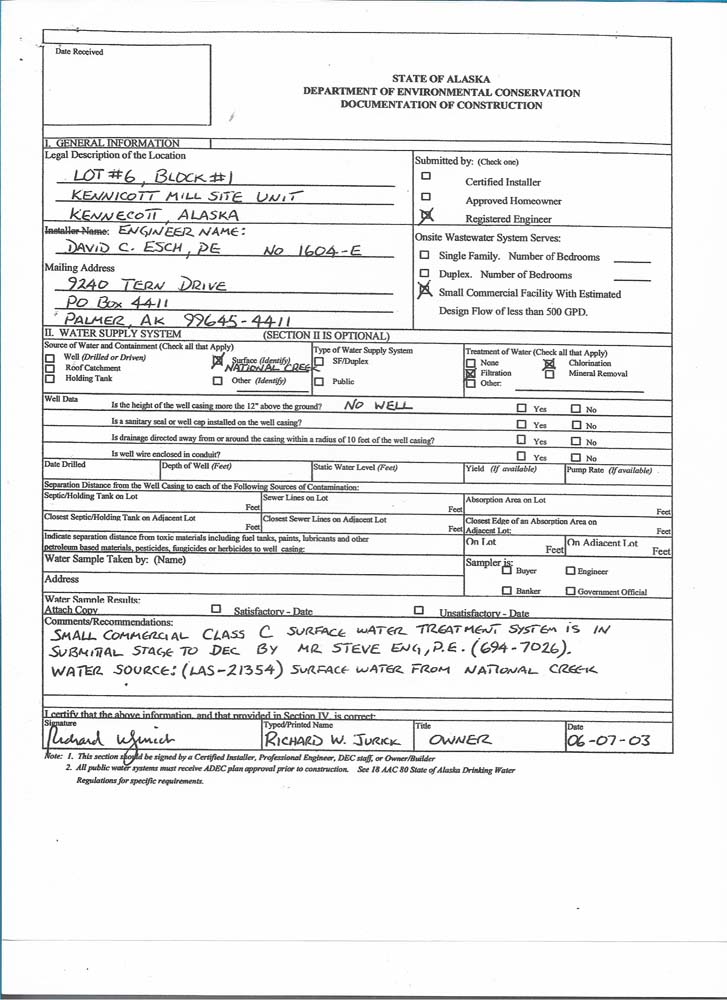 Date Received
STATE OF ALASKA
DEPARTMENT OF ENVIRONMENTAL CONSERVATION
DOCUMENTATION OF CONSTRUCTION
I. GENERAL INFORMATION
Legal Description of the Location
LOT #6, BLOCK #1
KENNICOTT MILL SITE UNIT
KENNECOTT, ALASKA
Installer Name: ENGINEER NAME:
DAVID C. ESCH, PE NO 1604-E
Mailing Address
9240 TERN DRIVE
PO BOX 4411
PALMER, AK 99645-4411
Submitted by: (Check one)
Certified Installer
Approved Homeowner
Registered Engineer
Onsite Wastewater System Serves:
Single Family. Number of Bedrooms
Duplex. Number of Bedrooms
Small Commercial Facility With Estimated
Design Flow of less than 500 GPD.
II. WATER SUPPLY SYSTEM (SECTION II IS OPTIONAL)
Source of Water and Containment (Check all that Apply)
Well (Drilled or Driven)
Roof Catchment
Holding Tank
Surface (Identify)
NATIONAL CREEK
Other (Identify)
Type of Water Supply System
SF/Duplex
Public
Treatment of Water (Check all that Apply)
None Chlorination
Filtration Mineral Removal
Other:
Well Data
Is the height of the well casing more the 12" above the ground? NO WELL Yes No
Is a sanitary seal or well cap installed on the well casing? Yes No
Is drainage directed away from or around the casing within a radius of 10 feet of the well casing? Yes No
Is well wire enclosed in conduit? Yes No
Date Drilled Depth of Well (Feet) Static Water Level (Feet) Yield (If available) Pump Rate (If available)
Separation Distance from the Well Casing to each of the Following Sources of Contamination:
Septic/Holding Tank on Lot Feet Sewer Lines on Lot Feet Absorption Area on Lot Feet
Closest Septic/Holding Tank on Adjacent Lot Feet Closest Sewer Lines on Adjacent Lot Feet Closest Edge of an Absorption Area on
Adjacent Lot: Feet
Indicate separation distance from toxic materials including fuel tanks, paints, lubricants and other
petroleum based materials, pesticides, fungicides or herbicides to well casing:
On Lot Feet On Adjacent Lot Feet
Water Sample Taken by: (Name)
Address
Sampler is:
Buyer Engineer
Banker Government Official
Water Sample Results:
Attach Copy Satisfactory - Date Unsatisfactory - Date
Comments/Recommendations:
SMALL COMMERCIAL CLASS C SURFACE WATER TREATMENT SYSTEM IS IN
SUBMITTAL STAGE TO DEC BY MR STEVE ENG, P.E. (694-7026).
WATER SOURCE: (LAS-21354) SURFACE WATER FROM NATIONAL CREEK
I certify that the above information, and that provided in Section IV, is correct:
Signature Typed/Printed Name Title Date
Richard W Jurick RICHARD W. JURICK OWNER 06-07-03
Note: 1. This section should be signed by a Certified Installer, Professional Engineer, DEC staff, or Owner/Builder
2. All public water systems must receive ADEC plan approval prior to construction. See 18 AAC 80 State of Alaska Drinking Water
Regulations for specific requirements.